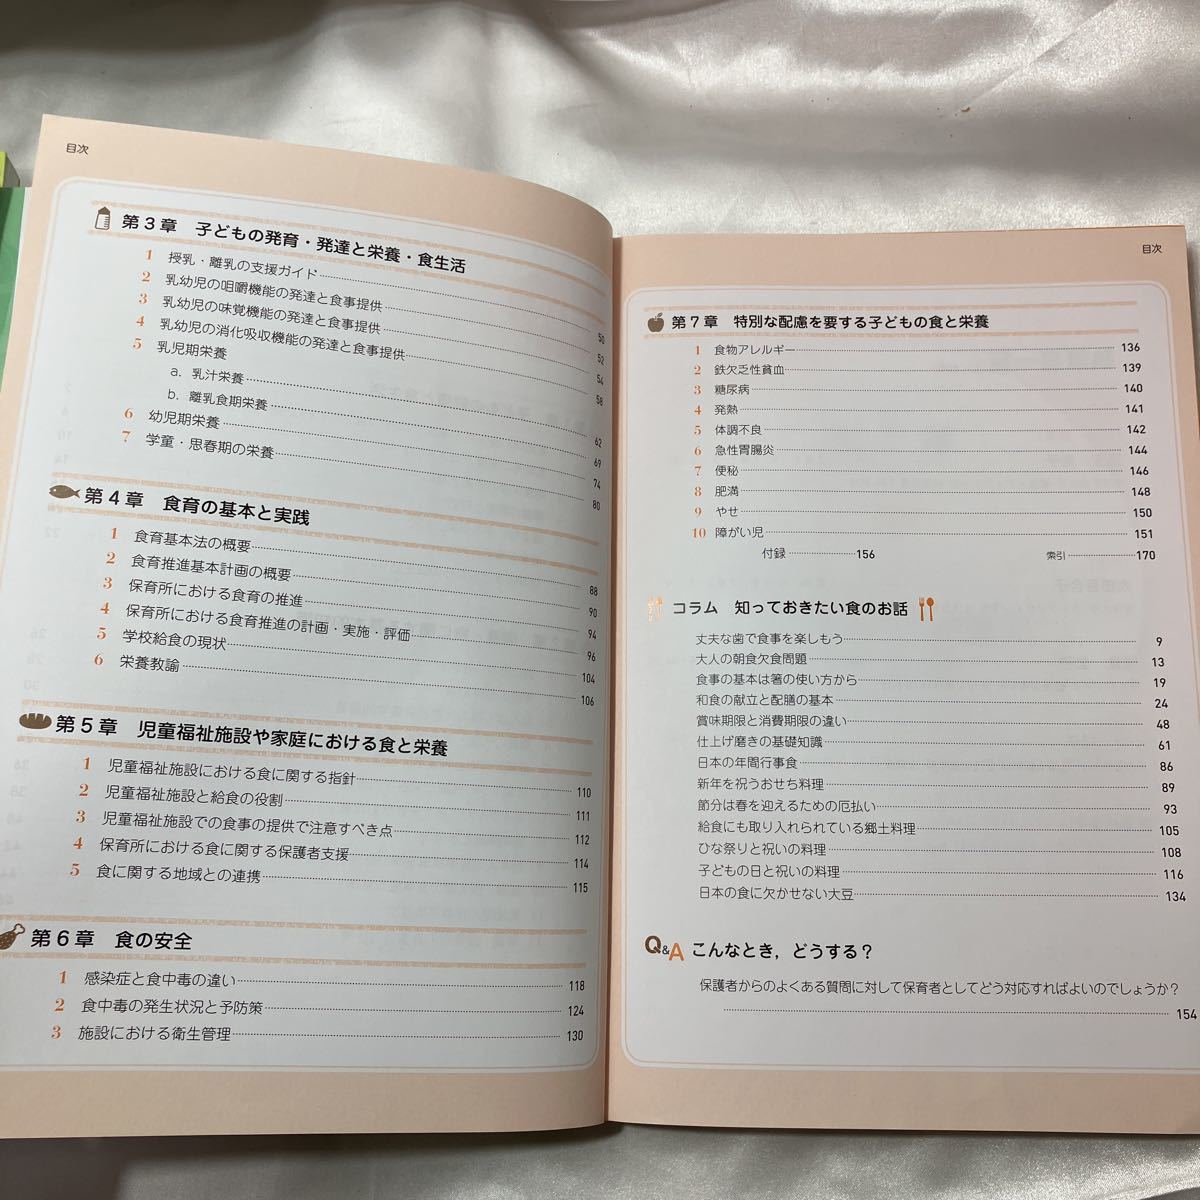 目次
第3章 子どもの発育・発達と栄養・食生活
1 授乳・離乳の支援ガイド 50
2 乳幼児の咀嚼機能の発達と食事提供 52
3 乳幼児の味覚機能の発達と食事提供 54
4 乳幼児の消化吸収機能の発達と食事提供 58
5 乳児期栄養
a. 乳汁栄養 62
b. 離乳食期栄養 69
6 幼児期栄養 74
7 学童・思春期の栄養 80
第4章 食育の基本と実践
1 食育基本法の概要 88
2 食育推進基本計画の概要 90
3 保育所における食育の推進 94
4 保育所における食育推進の計画・実施・評価 96
5 学校給食の現状 104
6 栄養教諭 106
第5章 児童福祉施設や家庭における食と栄養
1 児童福祉施設における食に関する指針 110
2 児童福祉施設と給食の役割 111
3 児童福祉施設での食事の提供で注意すべき点 112
4 保育所における食に関する保護者支援 114
5 食に関する地域との連携 115
第6章 食の安全
1 感染症と食中毒の違い 118
2 食中毒の発生状況と予防策 124
3 施設における衛生管理 130
目次
第7章 特別な配慮を要する子どもの食と栄養
1 食物アレルギー 136
2 鉄欠乏性貧血 139
3 糖尿病 140
4 発熱 141
5 体調不良 142
6 急性胃腸炎 144
7 便秘 146
8 肥満 148
9 やせ 150
10 障がい児 151
付録 156 索引 170
コラム 知っておきたい食のお話
丈夫な歯で食事を楽しもう 9
大人の朝食欠食問題 13
食事の基本は箸の使い方から 19
和食の献立と配膳の基本 24
賞味期限と消費期限の違い 48
仕上げ磨きの基礎知識 61
日本の年間行事食 86
新年を祝うおせち料理 89
節分は春を迎えるための厄払い 93
給食にも取り入れられている郷土料理 105
ひな祭りと祝いの料理 108
子どもの日と祝いの料理 116
日本の食に欠かせない大豆 134
Q&A こんなとき，どうする？
保護者からのよくある質問に対して保育者としてどう対応すればよいのでしょうか？
154